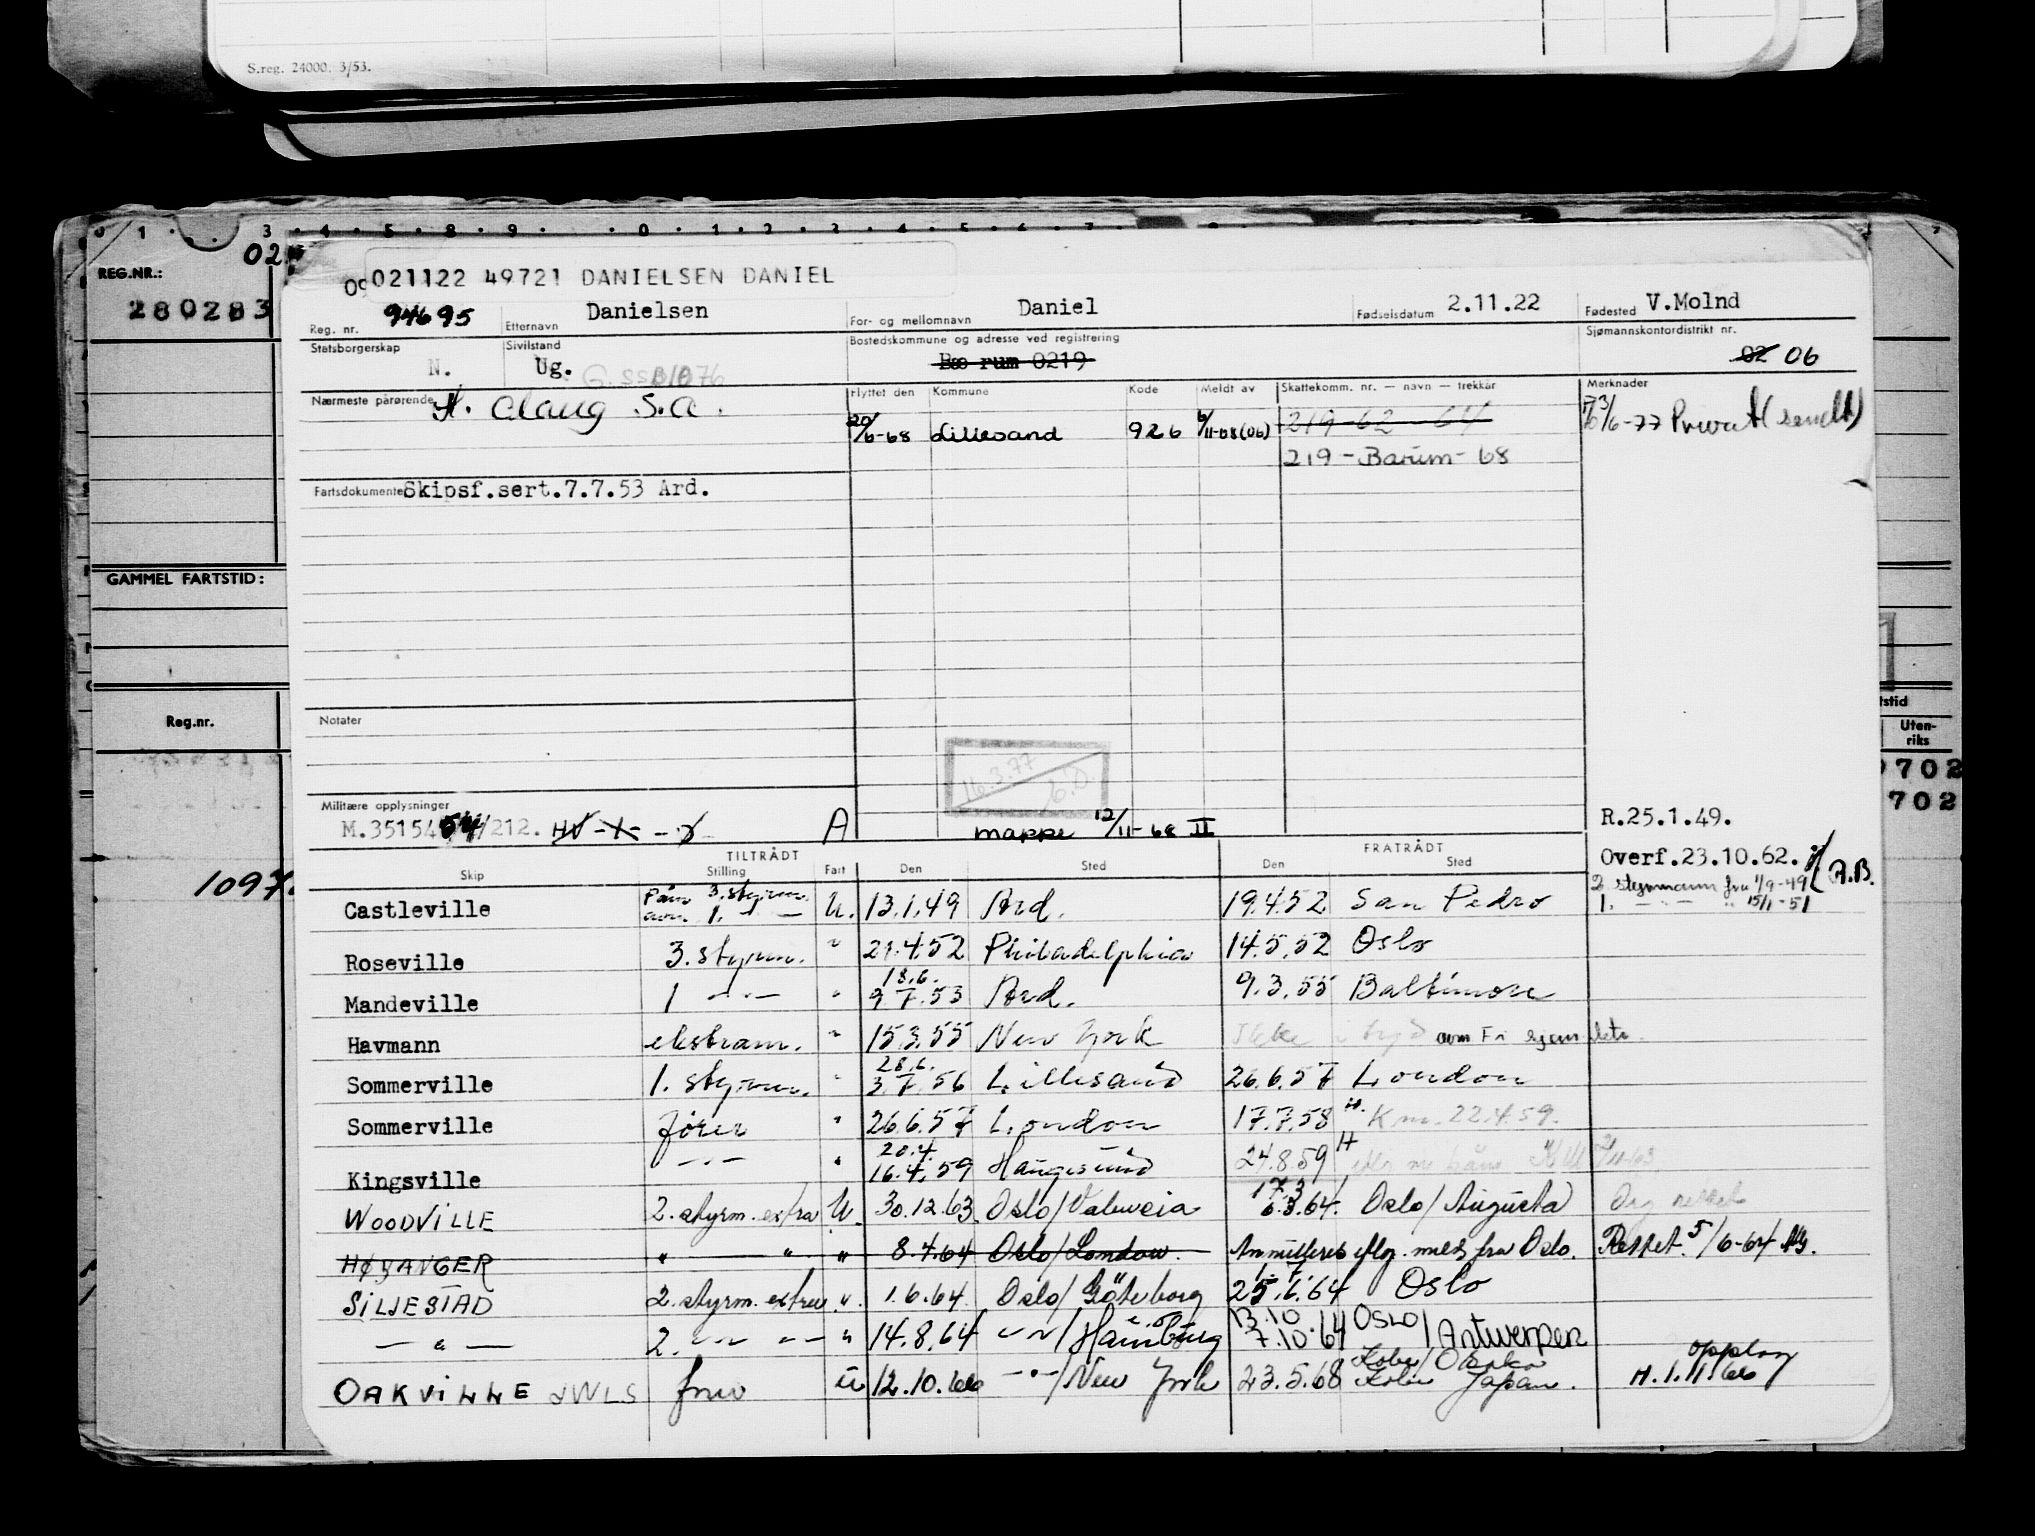 S.reg. 24000. 3/53.
REG.NR.: 02
280283
GAMMEL FARTSTID:
Reg.nr.
1097.
021122 49721 DANIELSEN DANIEL
Reg. nr. 94695 Etternavn Danielsen For- og mellomnavn Daniel Fødselsdatum 2.11.22 Fødested V.Molnd
Statsborgerskap N. Sivilstand Ug. Bostedskommune og adresse ved registrering Bæ rum 0219 Sjømannskontordistrikt nr. 02 06
Nærmeste pårørende H. Claug S.A. Flyttet den Kommune Kode Meldt av Skattekomm. nr. — navn — trekkår Merknader
20/6-68 Lillesand 926 6/11-68 (06) 219-62 64
219 - Bærum - 68
Fartsdokumenter Skipsf.sert.7.7.53 Ard.
Notater
16.3.77
Militære opplysninger
A mappe 12/11-68 II
R.25.1.49.
Overf.23.10.62. R.B.
2 styrmann fra 1/9-49
1. — " — " 15/1-51
TILTRÅDT FRATRÅDT
Skip Stilling Fart Den Sted Den Sted
Castleville 3. styrm. U. 13.1.49 Ard. 19.4.52 San Pedro
Roseville 3. styrm. " 21.4.52 Philadelphia 14.5.52 Oslo
Mandeville 1 — " — " 18.6. 9.7.53 Ard. 9.3.55 Baltimore
Havmann ekstram. " 15.3.55 New York
Sommerville 1. styrm. " 28.6. 3.7.56 Lillesand 26.6.57 London
Sommerville fører " 26.6.57 London 17.7.58 H. 22.4.59.
Kingsville — " — " 20.4. 16.4.59 Haugesund 24.8.59 H
WOODVILLE 2. styrm. extra U. 30.12.63. Oslo/Valencia 17.3 6.3.64. Oslo/Augusta
HØYANGER " — " " 8.4.64 Oslo/London Annulleres iflg. meld fra Oslo. Rettet 5/6-64
SILJESTAD 2. styrm. extra " 1.6.64 Oslo/Göteborg 1.7 25.6.64 Oslo
— " — 2. — " — " 14.8.64 — " — /Hamburg 13.10 7.10.64 OSLO/Antwerpen
OAKVILLE JWLS fører U 12.10.66 — " — /New York 23.5.68 Kobe/Osaka Japan. opplag H. 1.11.66
Uten-
riks
702
702